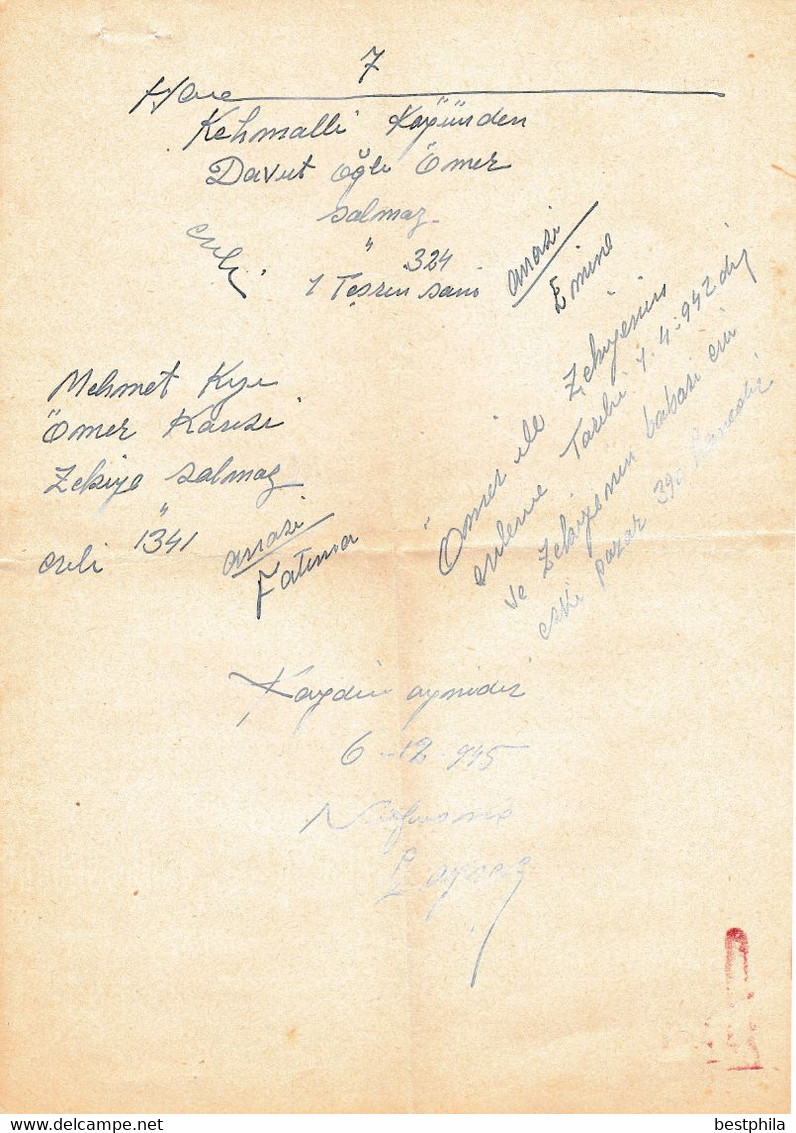 7
Hane
Kehmalli Köyünden
Davut oğlu Ömer
salmaz
evli " 324
1 Teşrin sani
anası
Emine
Mehmet Kızı
Ömer Karısı
Zekiye salmaz
" 
evli 1341
anası
Fatma
Ömer ile Zekiyenin
evlenme Tarihi 1.4.942 dir
ve Zekiyenin babası evi
eski pazar 390
Kaydın aynıdır
6-12-945
bestphila